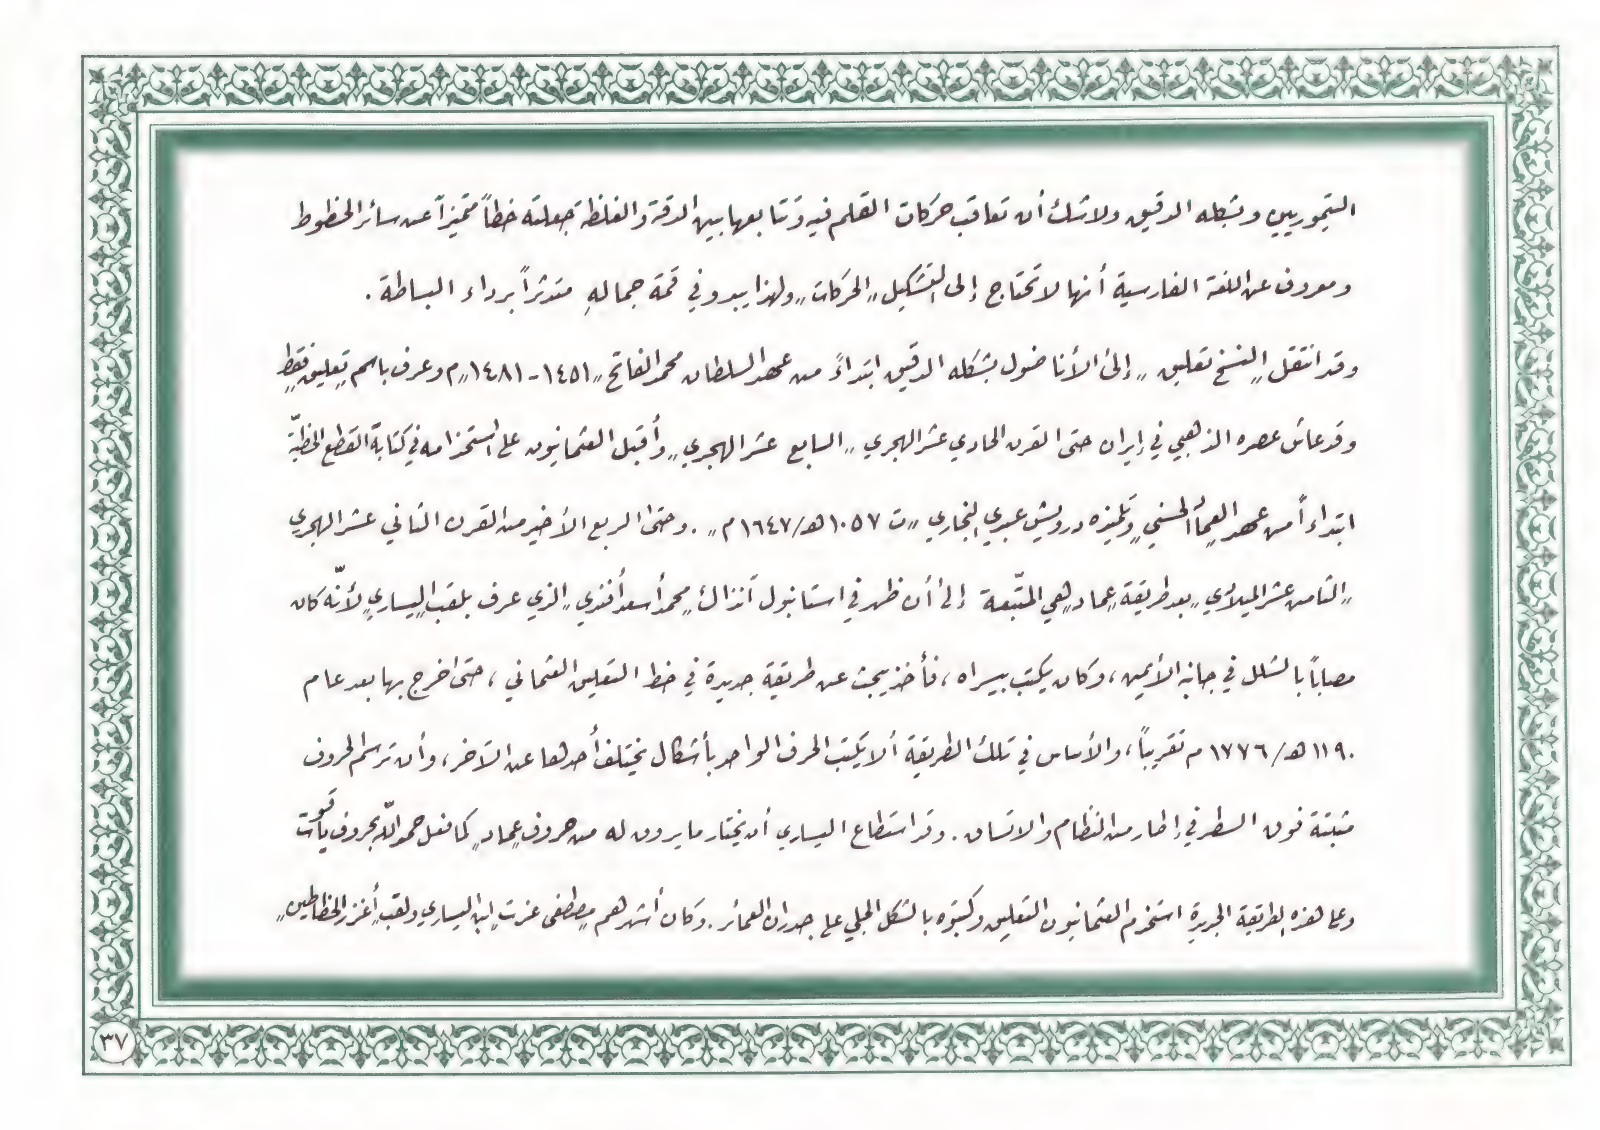 التيموريين وبشكله الدقيق ولاشك أن تعاقب حركات القلم فيه وتتابعها بين الدقة والغلظة جعلته خطاً متميزاً عن سائر الخطوط
ومعروف عن اللغة الفارسية أنها لا تحتاج إلى التشكيل „الحركات„ ولهذا يبدو في قمة جمالهِ متدثراً برداء البساطة .
وقد انتقل „النسخ تعليق„ إلى الأناضول بشكله الدقيق ابتداءً من عهد السلطان محمد الفاتح „١٤٥١-١٤٨١„م وعرف باسم „تعليق„ فقط
وقد عاش عصره الذهبي في إيران حتى القرن الحادي عشر الهجري „السابع عشر الهجري„ وأقبل العثمانيون على استخدامه في كتابة القطع الخطيّة
ابتداءاً من عهد العماد الحسني وتلميذه درويش عبدي البخاري „ت ١٠٥٧هـ/١٦٤٧م„ . وحتى الربع الأخير من القرن الثاني عشر الهجري
„الثامن عشر الميلادي„ بعد طريقة „عماد„ هي المتّبعة إلى أن ظهر في استانبول آنذاك „محمد أسعد أفندي„ الذي عرف بلقب „اليساري„ لأنّه كان
مصاباً بالشلل في جانبه الأيمن، وكان يكتب بيسراه، فأخذ يبحث عن طريقة جديدة في خط التعليق العثماني، حتى خرج بها بعد عام
١١٩٠هـ/١٧٧٦م تقريباً، والأساس في تلك الطريقة ألا يكتب الحرف الواحد بأشكال يختلف أحدها عن الآخر، وأن ترسم الحروف
مثبتة فوق السطر في إطار من النظام والاتساق . وقد استطاع اليساري أن يختار ما يروق له من حروف „عماد„ كما فعل حمد الله بحروف ياقوت
وعلى هذه الطريقة الجديدة استخدم العثمانيون التعليق وكتبوه بالشكل الجلي على جدران العمائر . وكان أشهرهم „مصطفى عزت„ ابن اليساري ولقب „أغزر الخطاطين„
٣٧